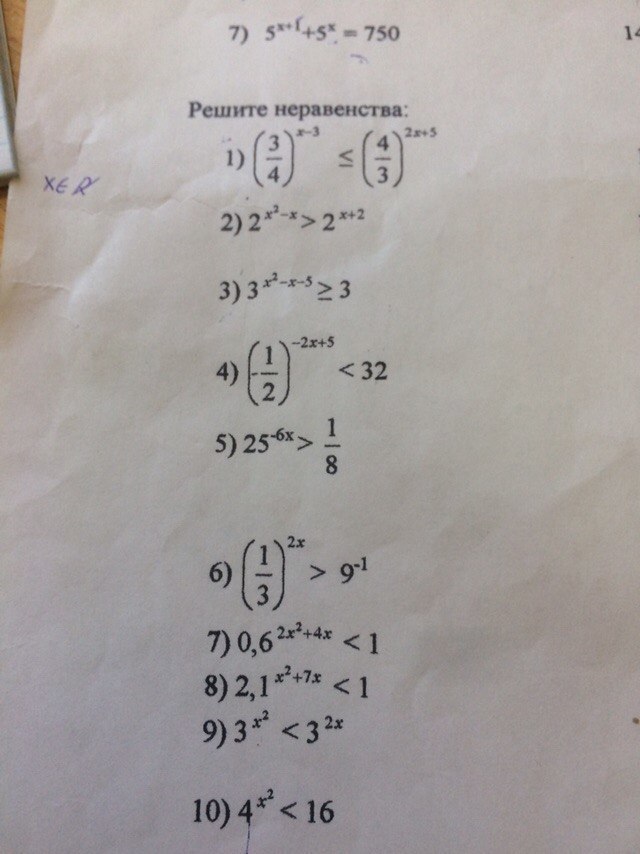 7) 5^{x+1}+5^x = 750
14
Решите неравенства:
1) (3/4)^{x-3} ≤ (4/3)^{2x+5}
x∈R
2) 2^{x²-x} > 2^{x+2}
3) 3^{x²-x-5} ≥ 3
4) (1/2)^{-2x+5} < 32
5) 25^{-6x} > 1/8
6) (1/3)^{2x} > 9^{-1}
7) 0,6^{2x²+4x} < 1
8) 2,1^{x²+7x} < 1
9) 3^{x²} < 3^{2x}
10) 4^{x²} < 16